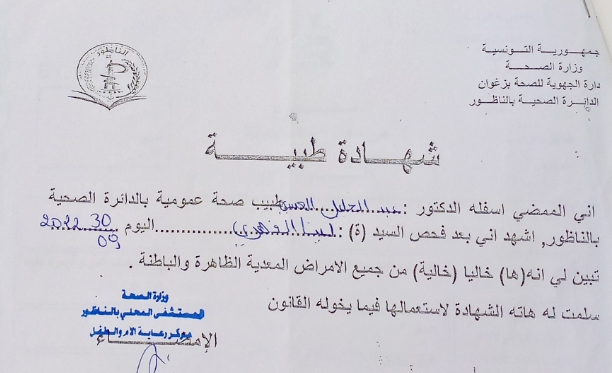 الناظور
جمهورية التونسية
وزارة الصحة
دارة الجهوية للصحة بزغوان
الدائرة الصحية بالناظور
شهادة طبية
اني الممضي اسفله الدكتور : عبد الجليل طبيب صحة عمومية بالدائرة الصحية
بالناظور, اشهد اني بعد فحص السيد (ة) : اليوم 30 09 2022
تبين لي انه(ها) خاليا (خالية) من جميع الامراض المعدية الظاهرة والباطنة .
سلمت له هاته الشهادة لاستعمالها فيما يخوله القانون
الإمضاء
وزارة الصحة
المستشفى المحلي بالناظور
مركز رعاية الام والطفل